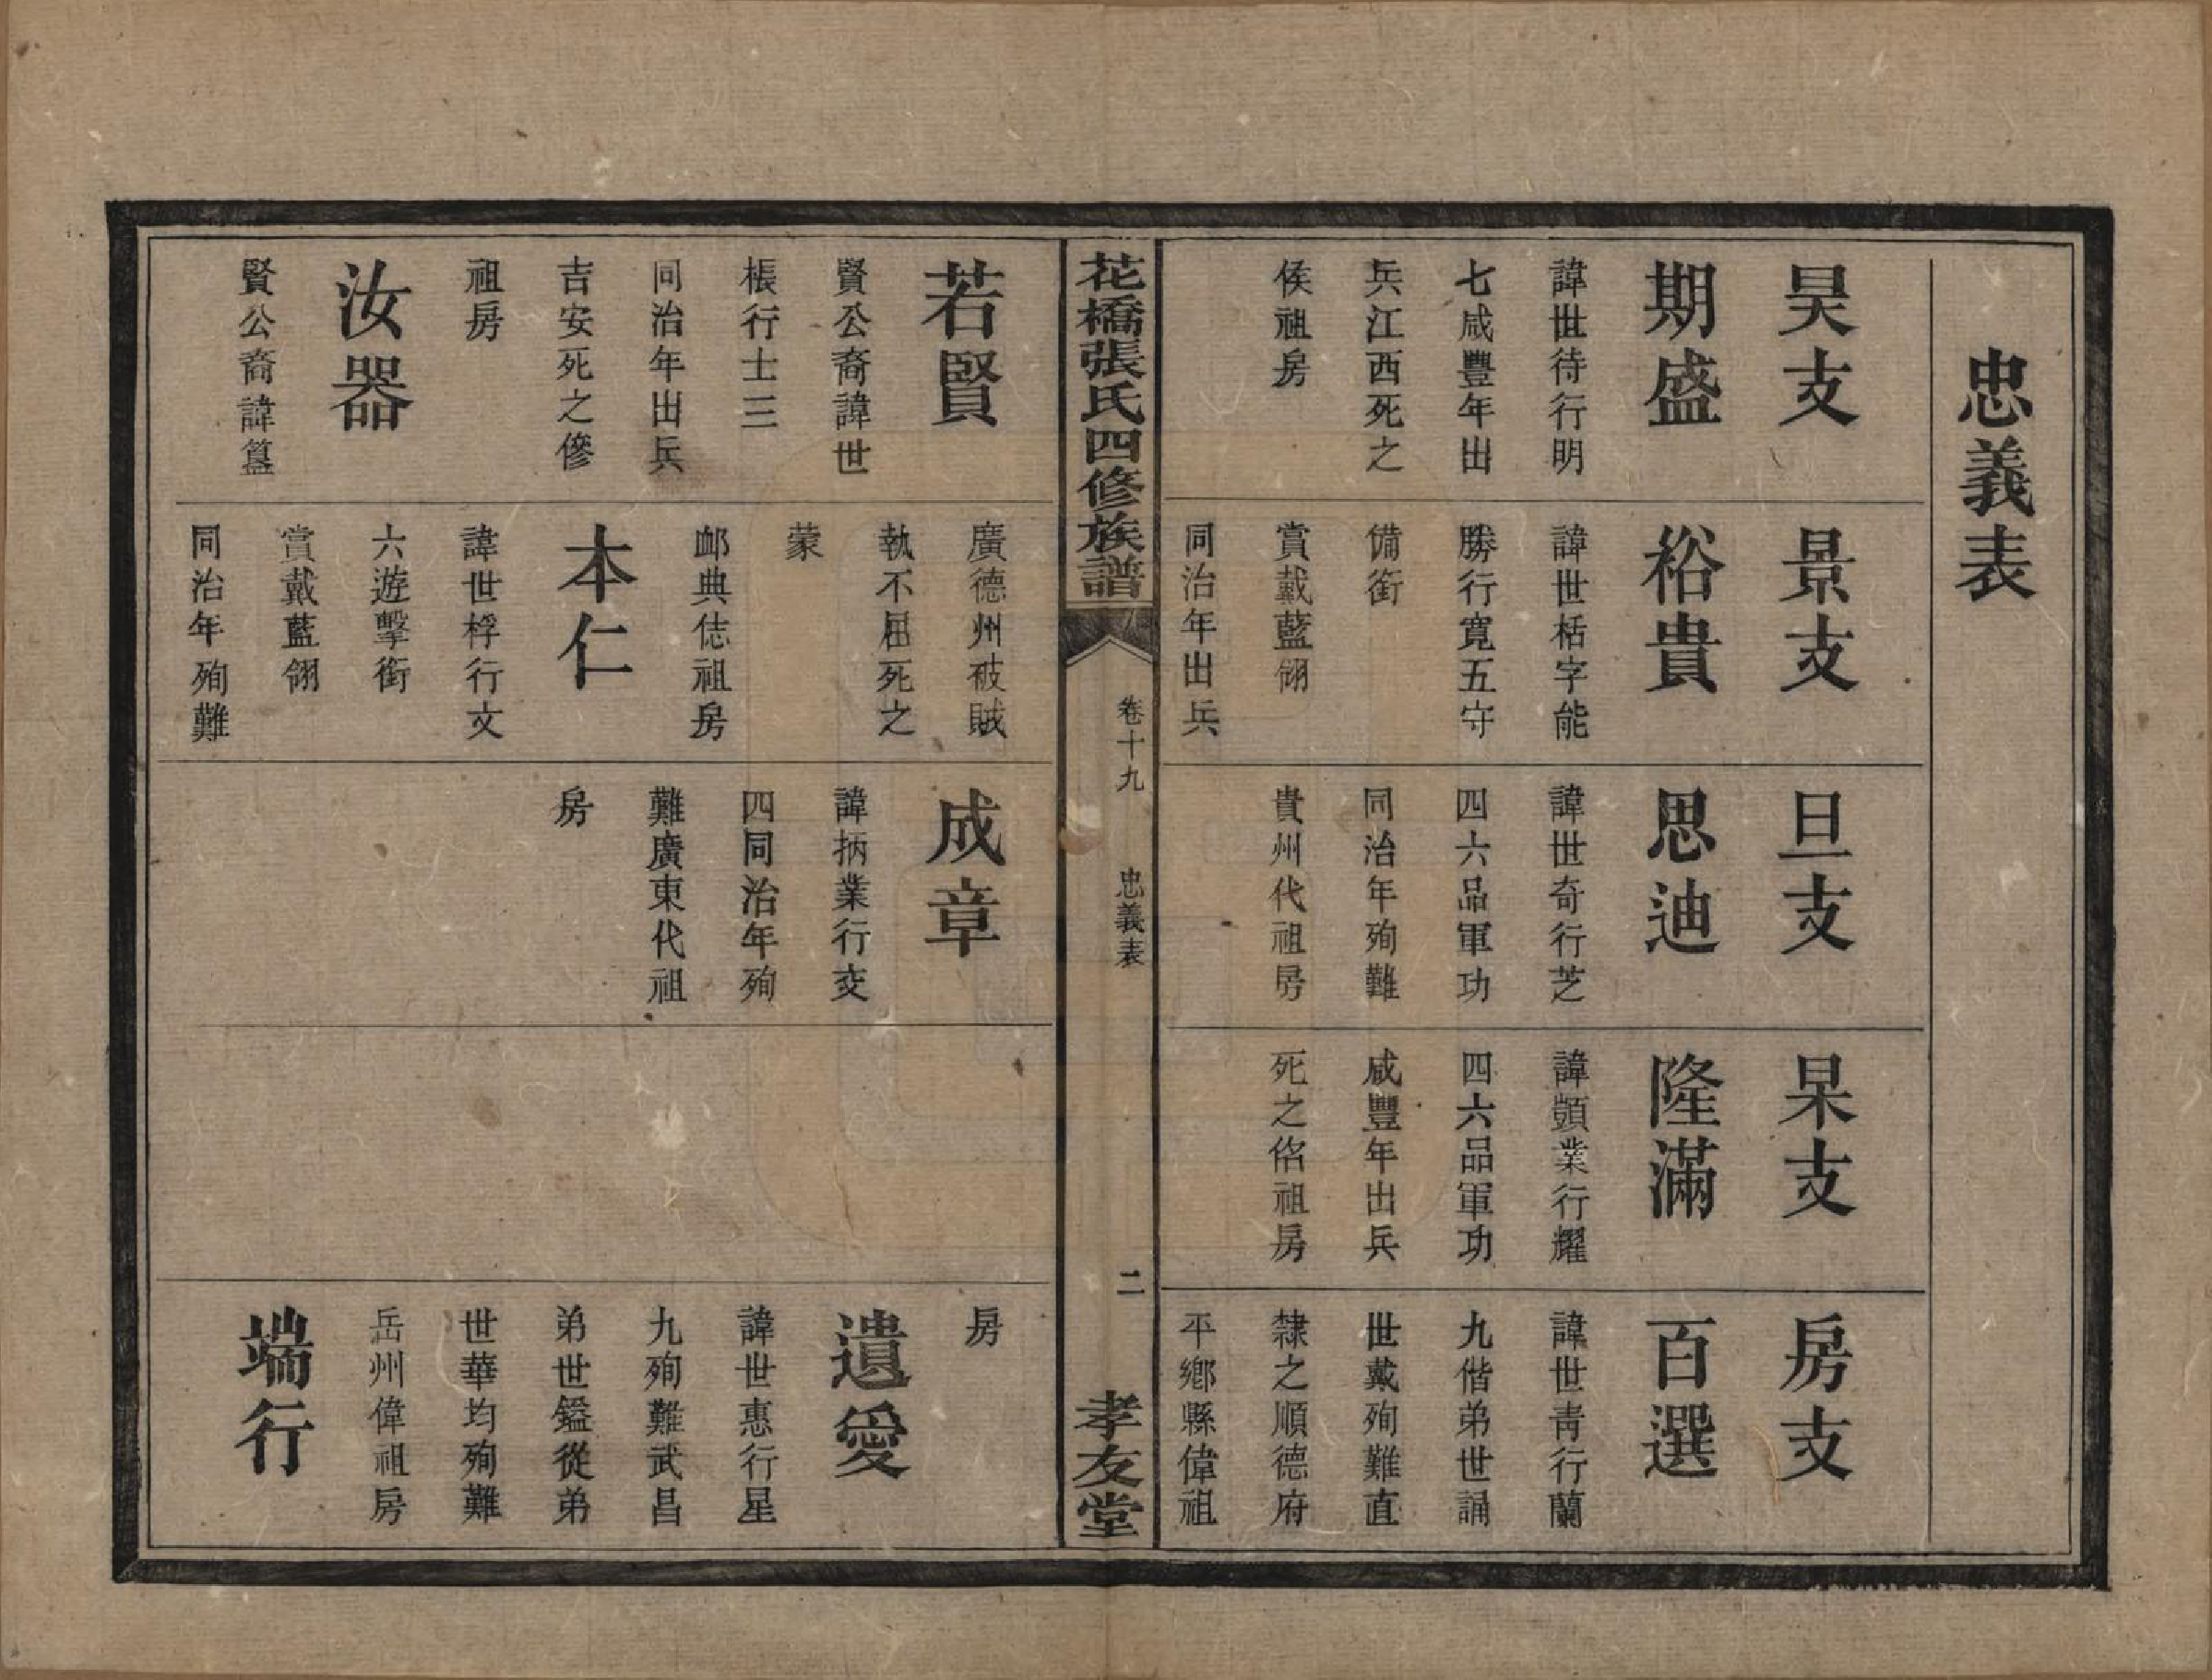 忠義表
昊支
期盛
諱世待行明
七咸豐年出
兵江西死之
侯祖房
景支
裕貴
諱世栝字能
勝行寬五守
備銜
賞戴藍翎
同治年出兵
旦支
思迪
諱世奇行芝
四六品軍功
同治年殉難
貴州代祖房
杲支
隆滿
諱顗業行耀
四六品軍功
咸豐年出兵
死之佲祖房
房支
百選
諱世靑行蘭
九偕弟世誦
世戴殉難直
隸之順德府
平鄉縣偉祖
花橋張氏四修族譜
卷十九
忠義表
二
孝友堂
若賢
賢公裔諱世
棖行士三
同治年出兵
吉安死之修
祖房
汝器
賢公裔諱簋
廣德州破賊
執不屈死之
蒙
卹典俧祖房
本仁
諱世桴行文
六遊擊銜
賞戴藍翎
同治年殉難
成章
諱抦業行交
四同治年殉
難廣東代祖
房
房
遺愛
諱世惠行星
九殉難武昌
弟世鎰從弟
世華均殉難
岳州偉祖房
端行